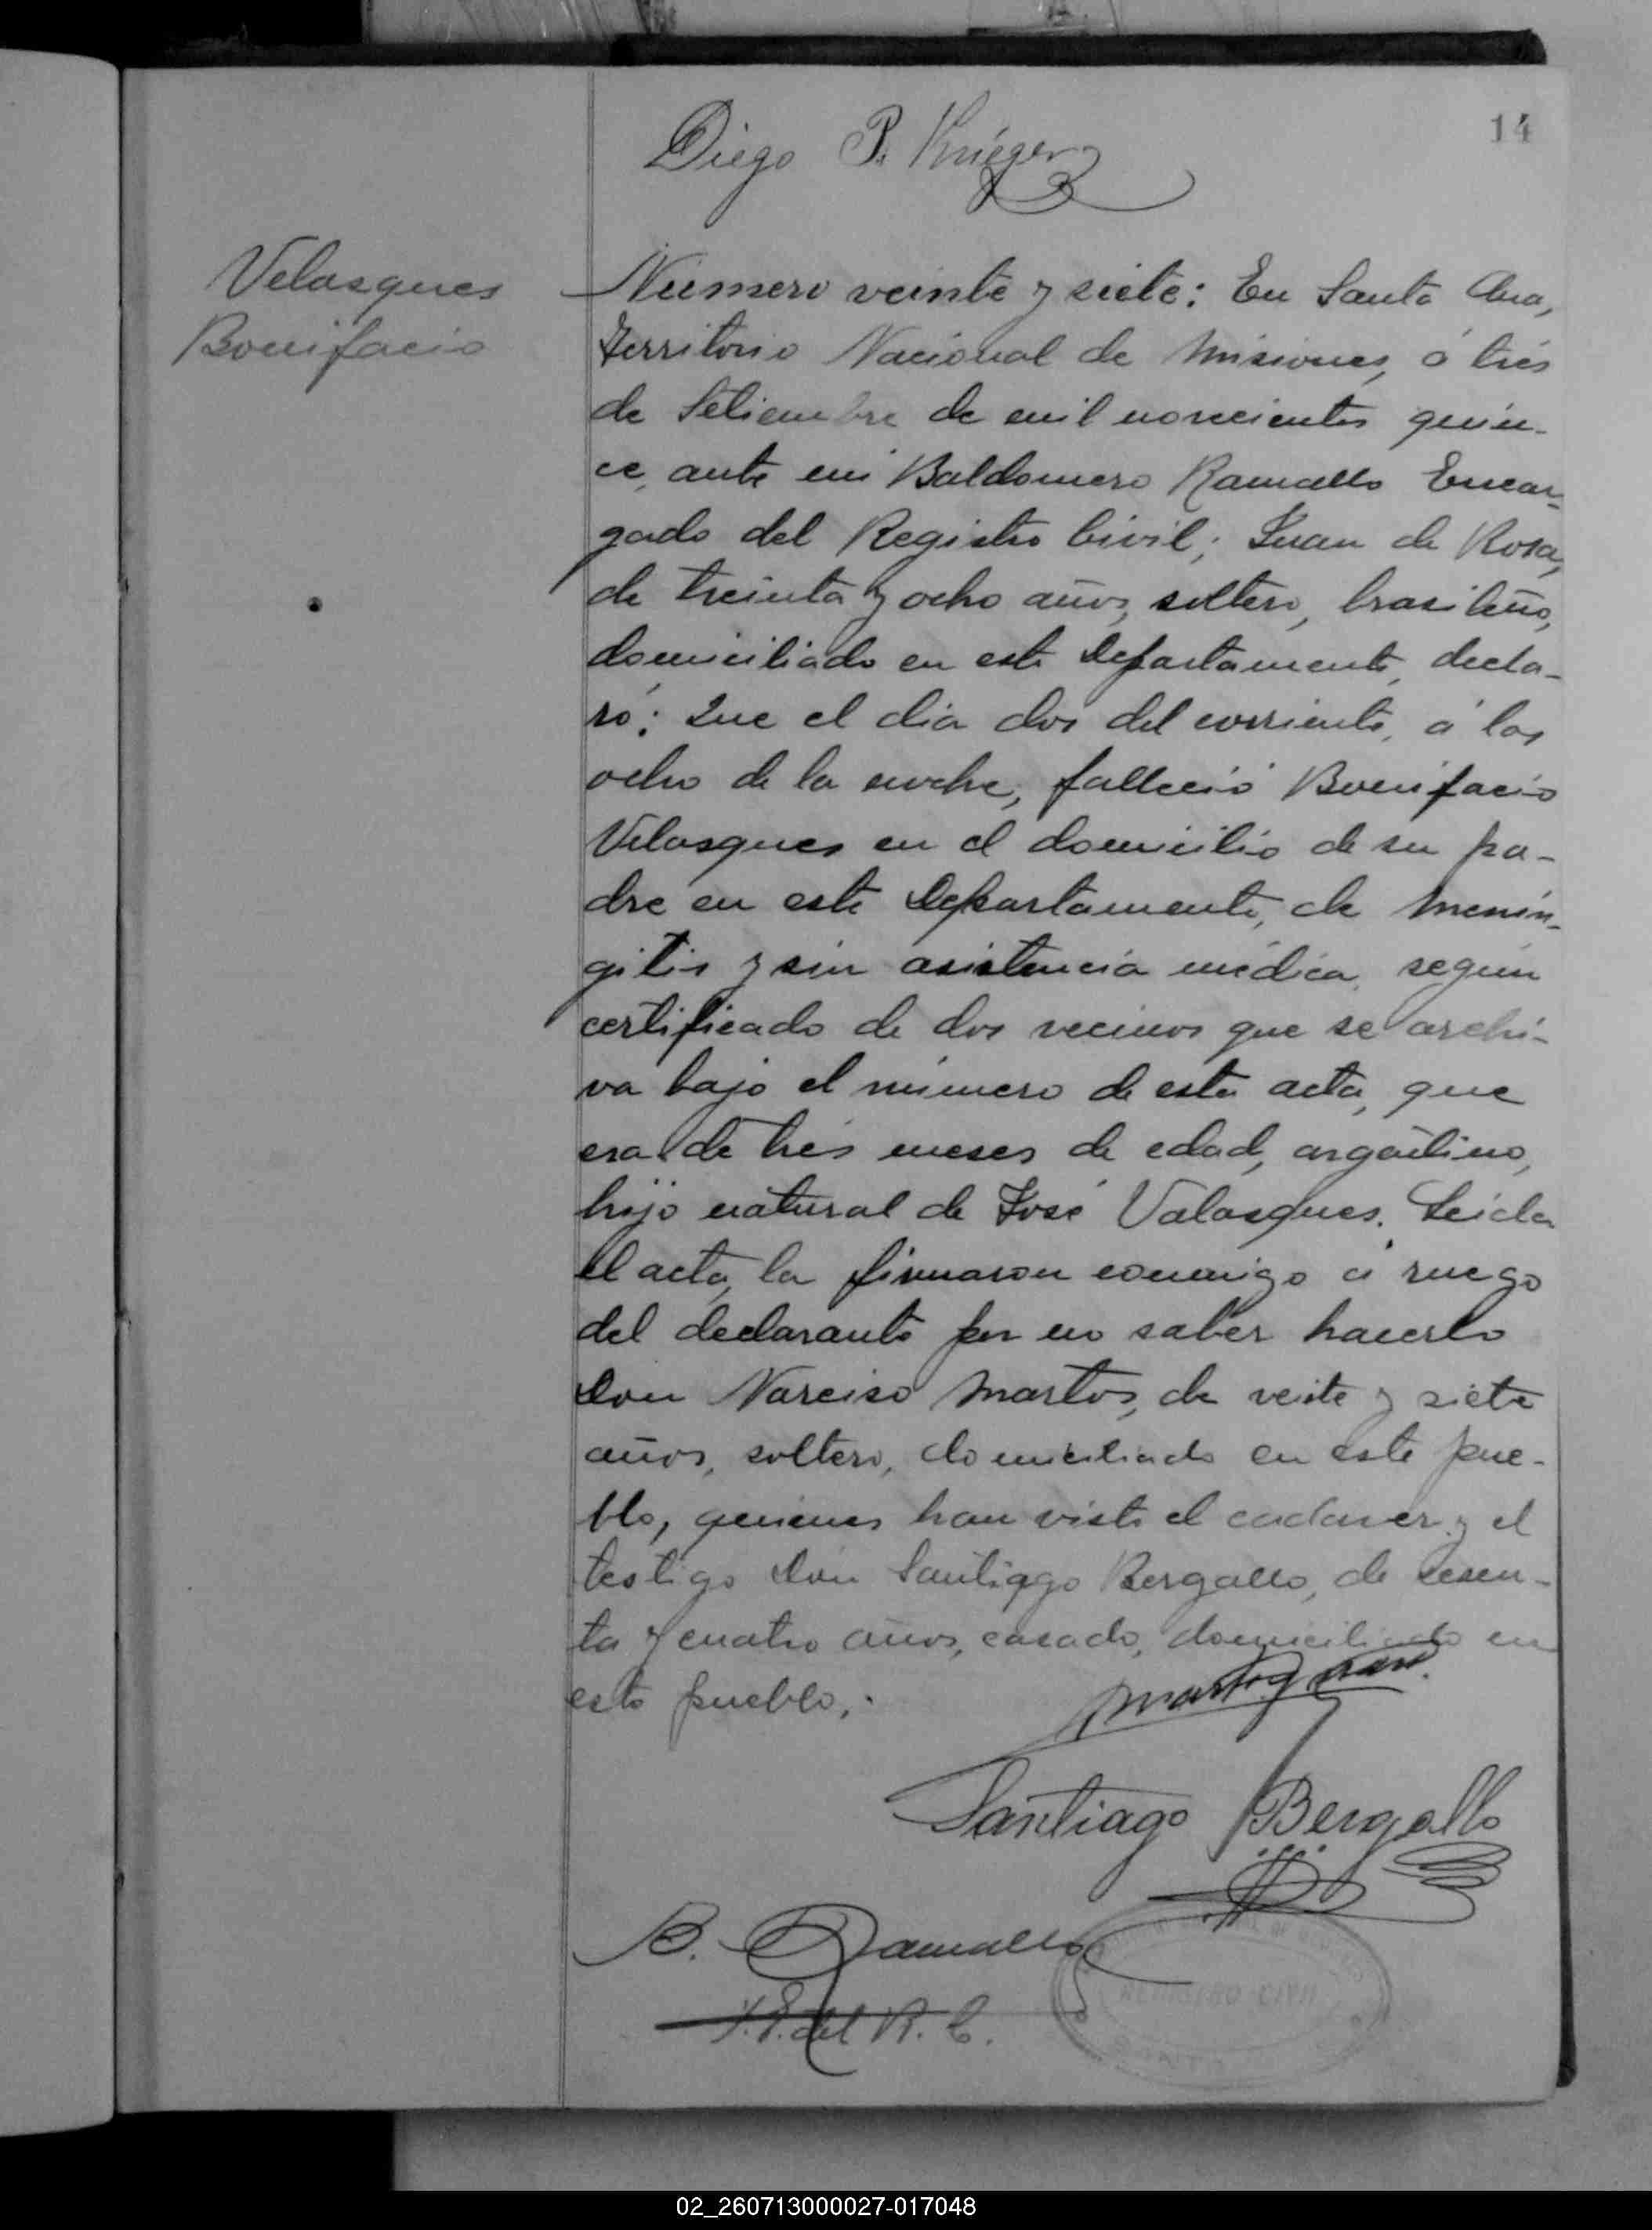 14
Diego P. Krieger
Velasques
Bonifacio
Número veinte y siete: En Santa Ana,
Territorio Nacional de Misiones, á tres
de Setiembre de mil novecientos quin-
ce, ante mi Baldomero Ramallo Encar-
gado del Registro Civil; Juan de Rosa,
de treinta y ocho años, soltero, brasileño,
domiciliado en este Departamento, decla-
ró: Que el dia dos del corriente, á las
ocho de la noche, falleció Bonifacio
Velasques en el domicilio de su pa-
dre en este Departamento, de Menin-
gitis y sin asistencia médica, segun
certificado de dos vecinos que se archi-
va bajo el número de esta acta, que
era de tres meses de edad, argentino,
hijo natural de José Valasques. Leida
el acta, la firmaron conmigo á ruego
del declarante por no saber hacerlo
Don Narciso Martos, de veite y siete
años, soltero, domiciliado en este pue-
blo, quienes han visto el cadaver y el
testigo Don Santiago Bergallo, de sesen-
ta y cuatro años, casado, domiciliado en
este pueblo.
Santiago Bergallo
B. Ramallo
del R. C.
REGISTRO CIVIL
02_260713000027-017048